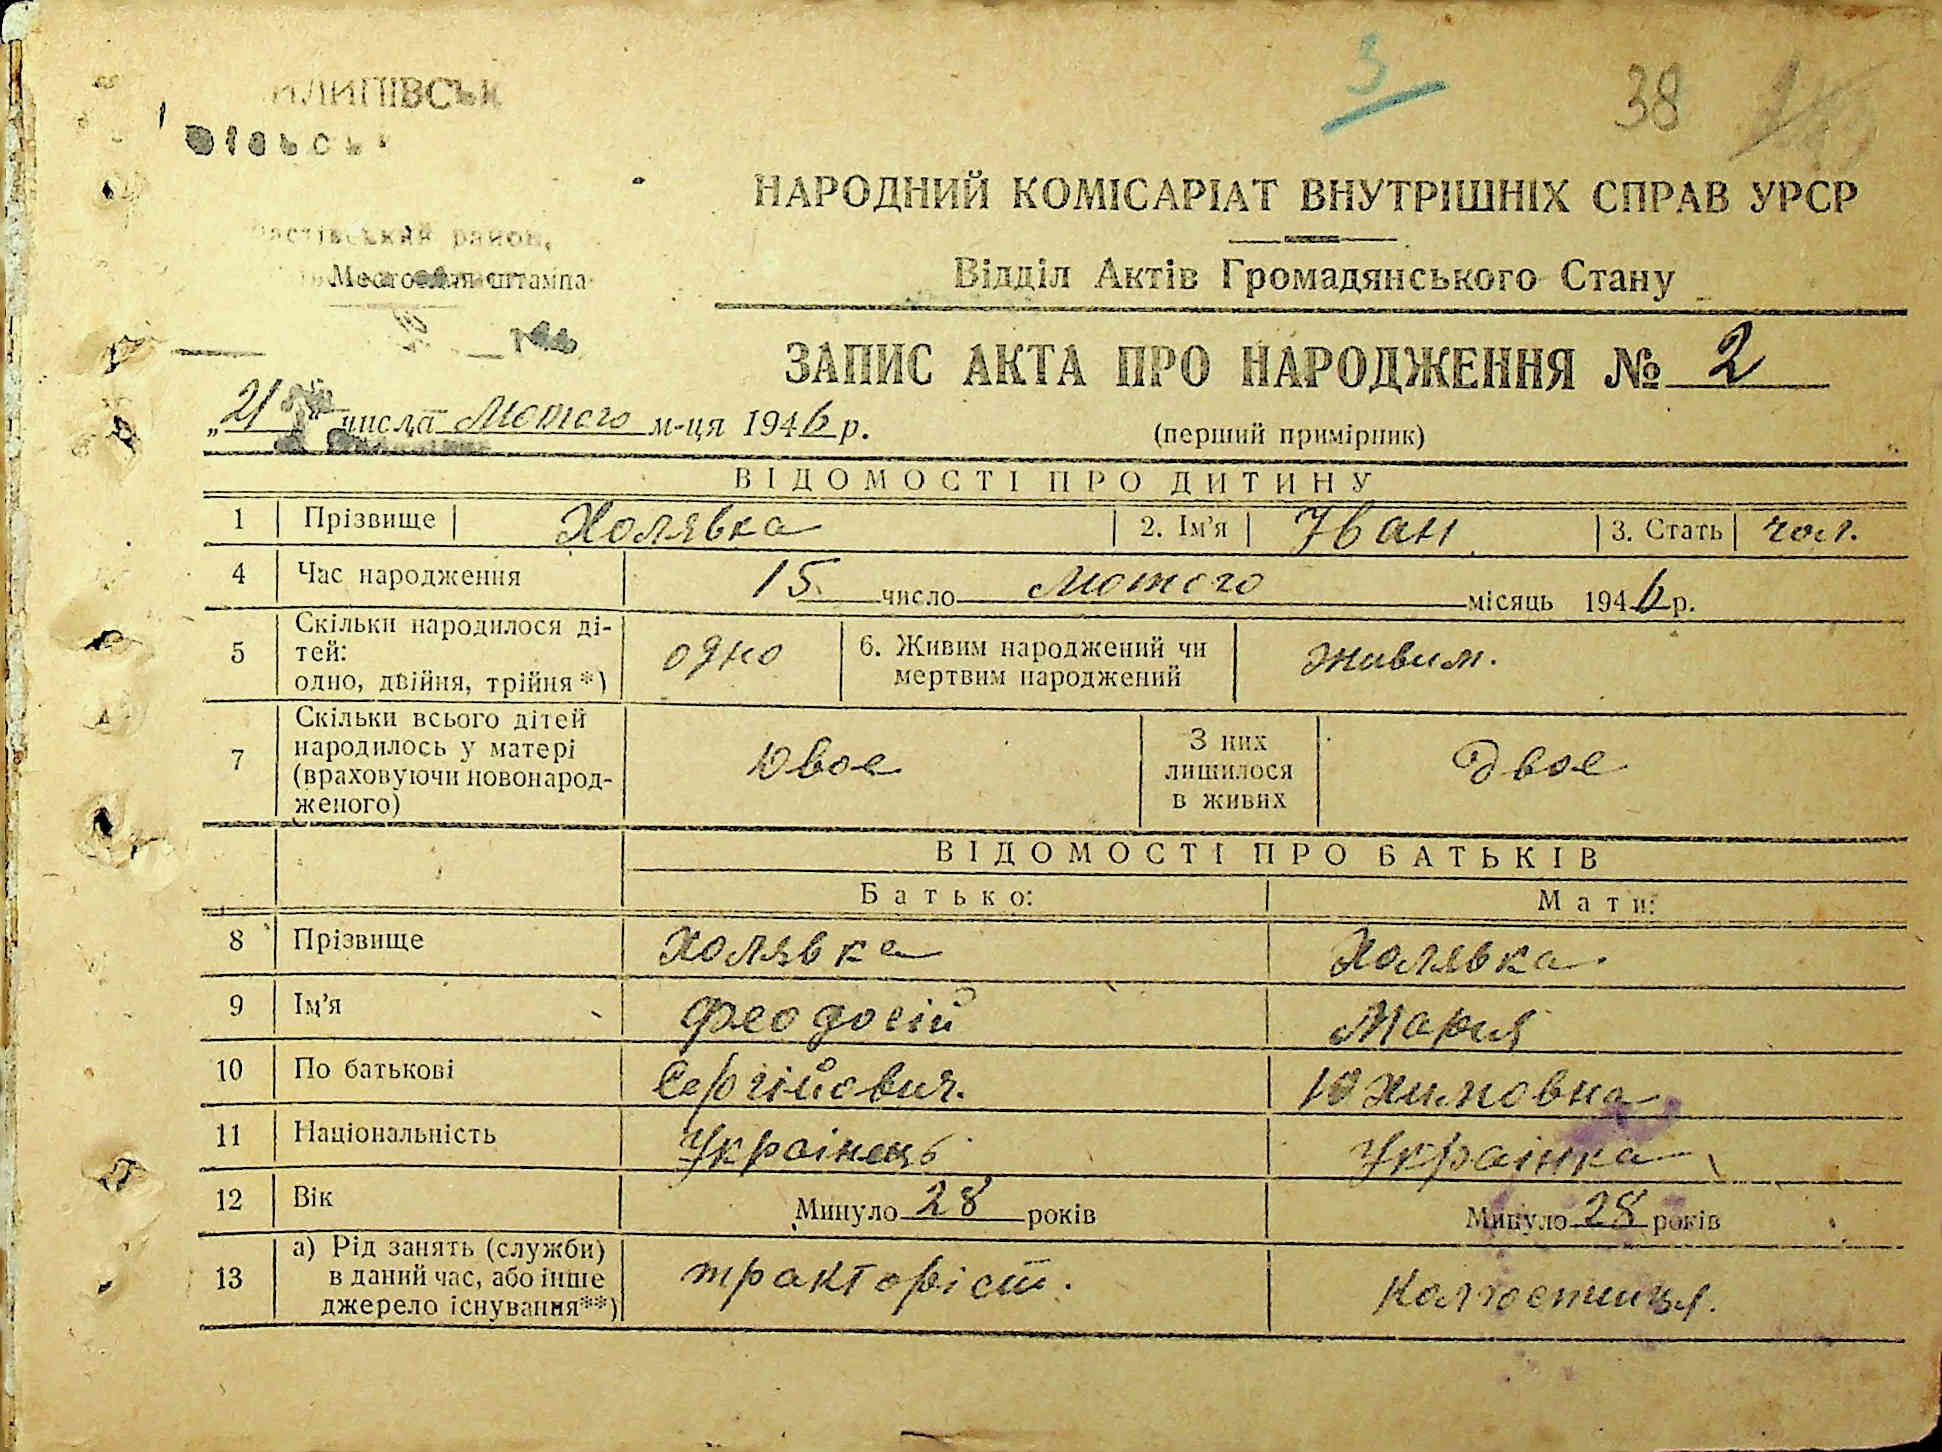 3
38
НАРОДНИЙ КОМІСАРІАТ ВНУТРІШНІХ СПРАВ УРСР
район,
Место для штампа
Відділ Актів Громадянського Стану
ЗАПИС АКТА ПРО НАРОДЖЕННЯ № 2
„21" числа Лютого м-ця 1946 р.
(перший примірник)
ВІДОМОСТІ ПРО ДИТИНУ
1 Прізвище Холявка 2. Ім'я Іван 3. Стать чол.
4 Час народження 15 число Лютого місяць 1946 р.
5 Скільки народилося ді-
тей:
одно, двійня, трійня *)
одно
6. Живим народжений чи
мертвим народжений
живим.
7 Скільки всього дітей
народилось у матері
(враховуючи новонарод-
женого)
Двоє
З них
лишилося
в живих
Двоє
ВІДОМОСТІ ПРО БАТЬКІВ
Батько: Мати:
8 Прізвище Холявка Холявка.
9 Ім'я Феодосій Мария
10 По батькові Сергійович. Юхимовна
11 Національність Українець Українка
12 Вік Минуло 28 років Минуло 28 років
13 а) Рід занять (служби)
в даний час, або інше
джерело існування**)
тракторіст.
Колгостниця.